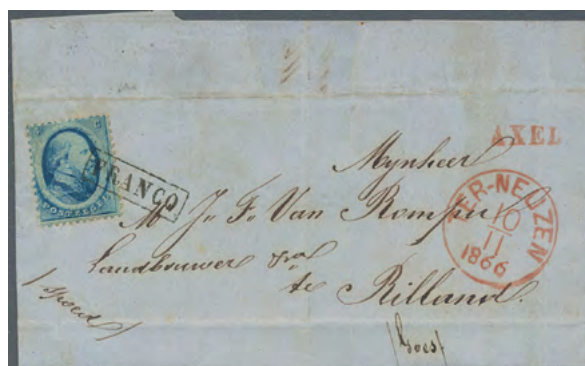 5
POSTZEGEL
FRANCO
AXEL
TER-NEUZEN
10
11
1866
Mynheer
J. F. Van Rompu
Landbouwer
te Rilland.
/spoed/
/Goes/